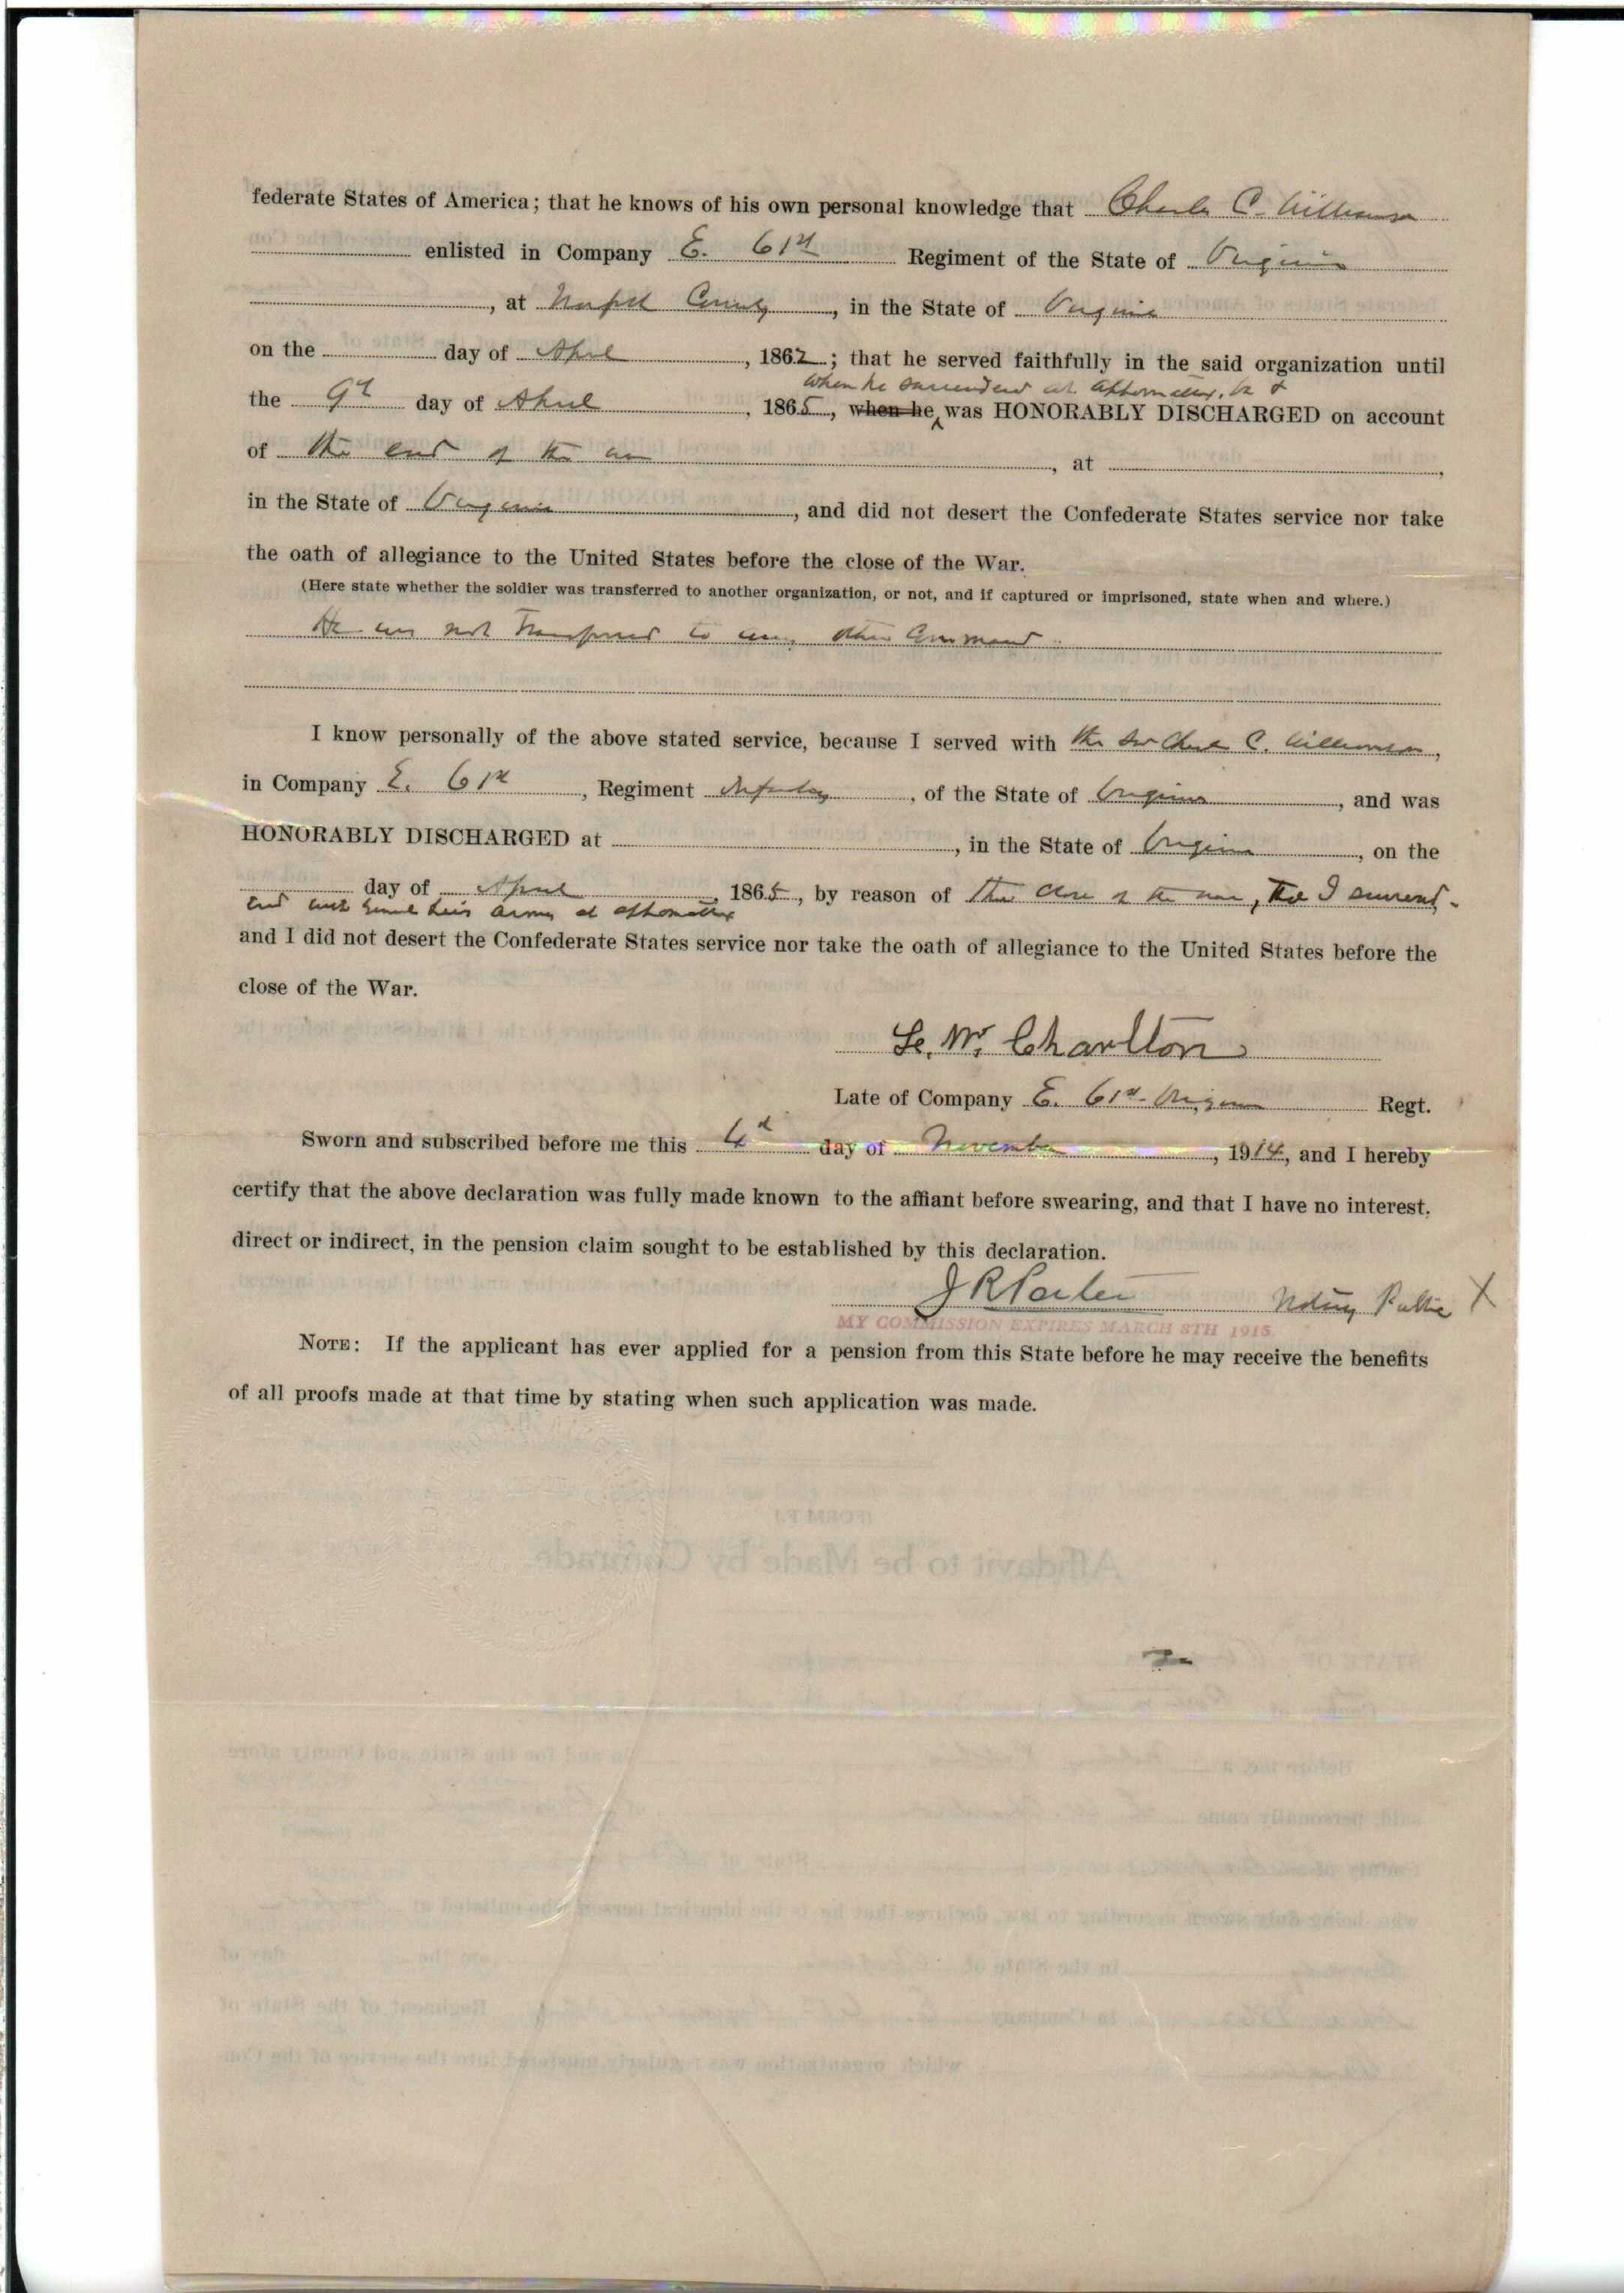 federate States of America; that he knows of his own personal knowledge that Charles C. Williamson
enlisted in Company E. 61st Regiment of the State of Virginia
, at Norfolk County, in the State of Virginia
on the day of April, 1862; that he served faithfully in the said organization until
when he surrendered at Appomattox, Va &
the 9th day of April, 1865, when he was HONORABLY DISCHARGED on account
of the end of the war, at ,
in the State of Virginia, and did not desert the Confederate States service nor take
the oath of allegiance to the United States before the close of the War.
(Here state whether the soldier was transferred to another organization, or not, and if captured or imprisoned, state when and where.)
He was not Transferred to any other Command
I know personally of the above stated service, because I served with the said Charles C. Williamson,
in Company E. 61st, Regiment Infantry, of the State of Virginia, and was
HONORABLY DISCHARGED at , in the State of Virginia, on the
day of April 1865, by reason of the close of the war, that I surrend-
ered with General Lee's army at Appomattox
and I did not desert the Confederate States service nor take the oath of allegiance to the United States before the
close of the War.
W. Charlton
Late of Company E. 61st Virginia Regt.
Sworn and subscribed before me this 4th day of November, 1914, and I hereby
certify that the above declaration was fully made known to the affiant before swearing, and that I have no interest,
direct or indirect, in the pension claim sought to be established by this declaration.
J R Parker Notary Public X
MY COMMISSION EXPIRES MARCH 8TH 1915
NOTE: If the applicant has ever applied for a pension from this State before he may receive the benefits
of all proofs made at that time by stating when such application was made.